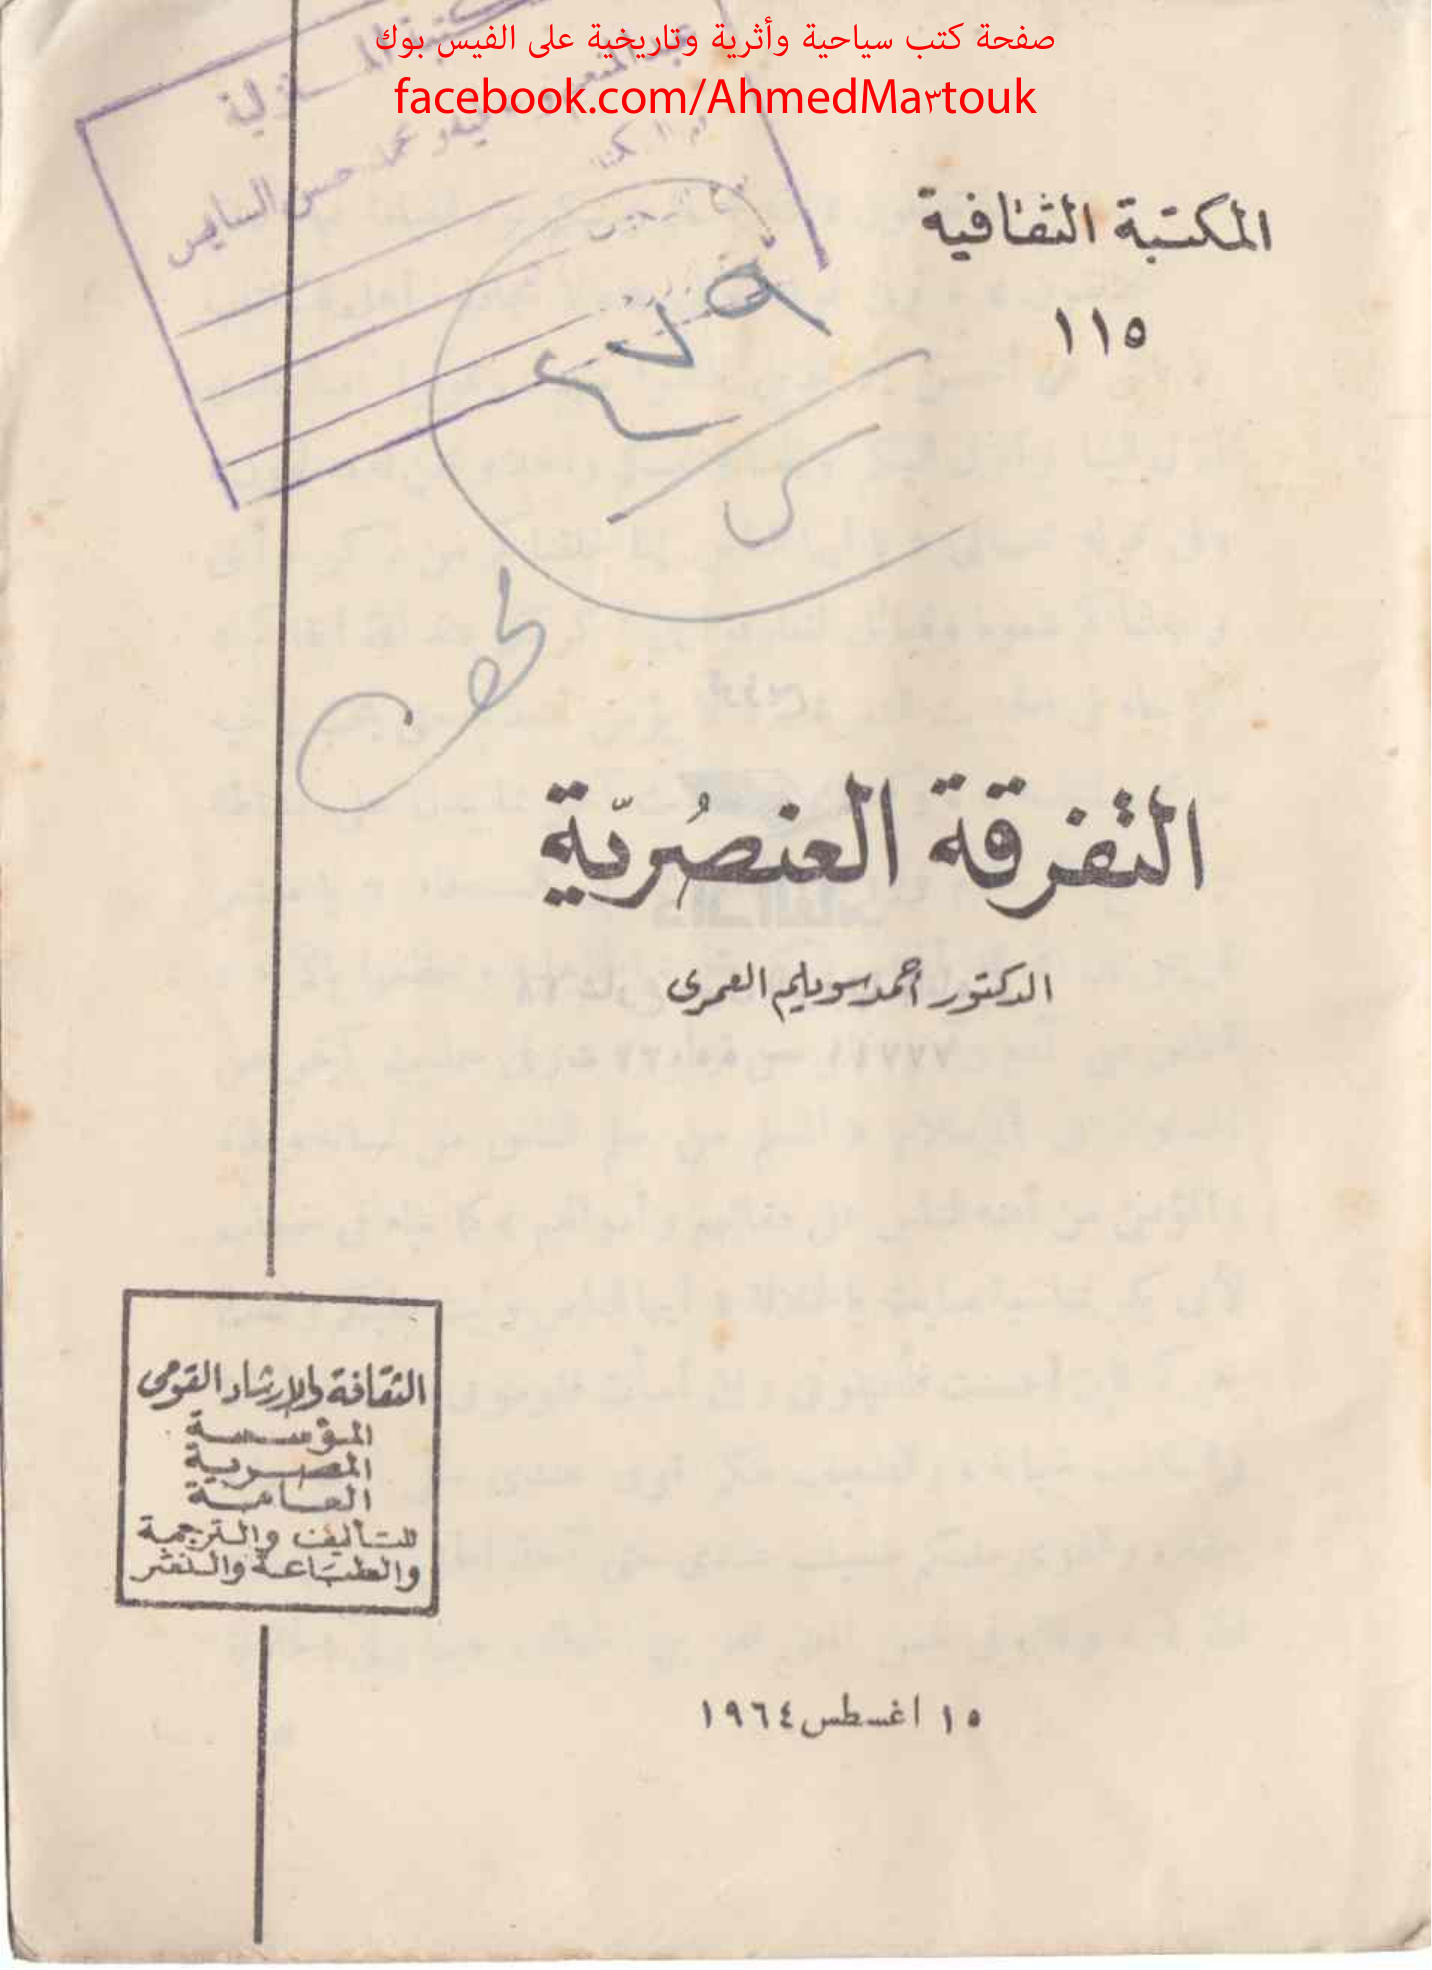 صفحة كتب سياحية وأثرية وتاريخية على الفيس بوك
facebook.com/AhmedMa٣touk
المكتبة الثقافية
١١٥
التفرقة العنصُريّة
الدكتور أحمد سويلم العمرى
الثقافة والإرشاد القومى
المؤسسة
المصرية
العامة
للتأليف والترجمة
والطباعة والنشر
١٥ اغسطس ١٩٦٤